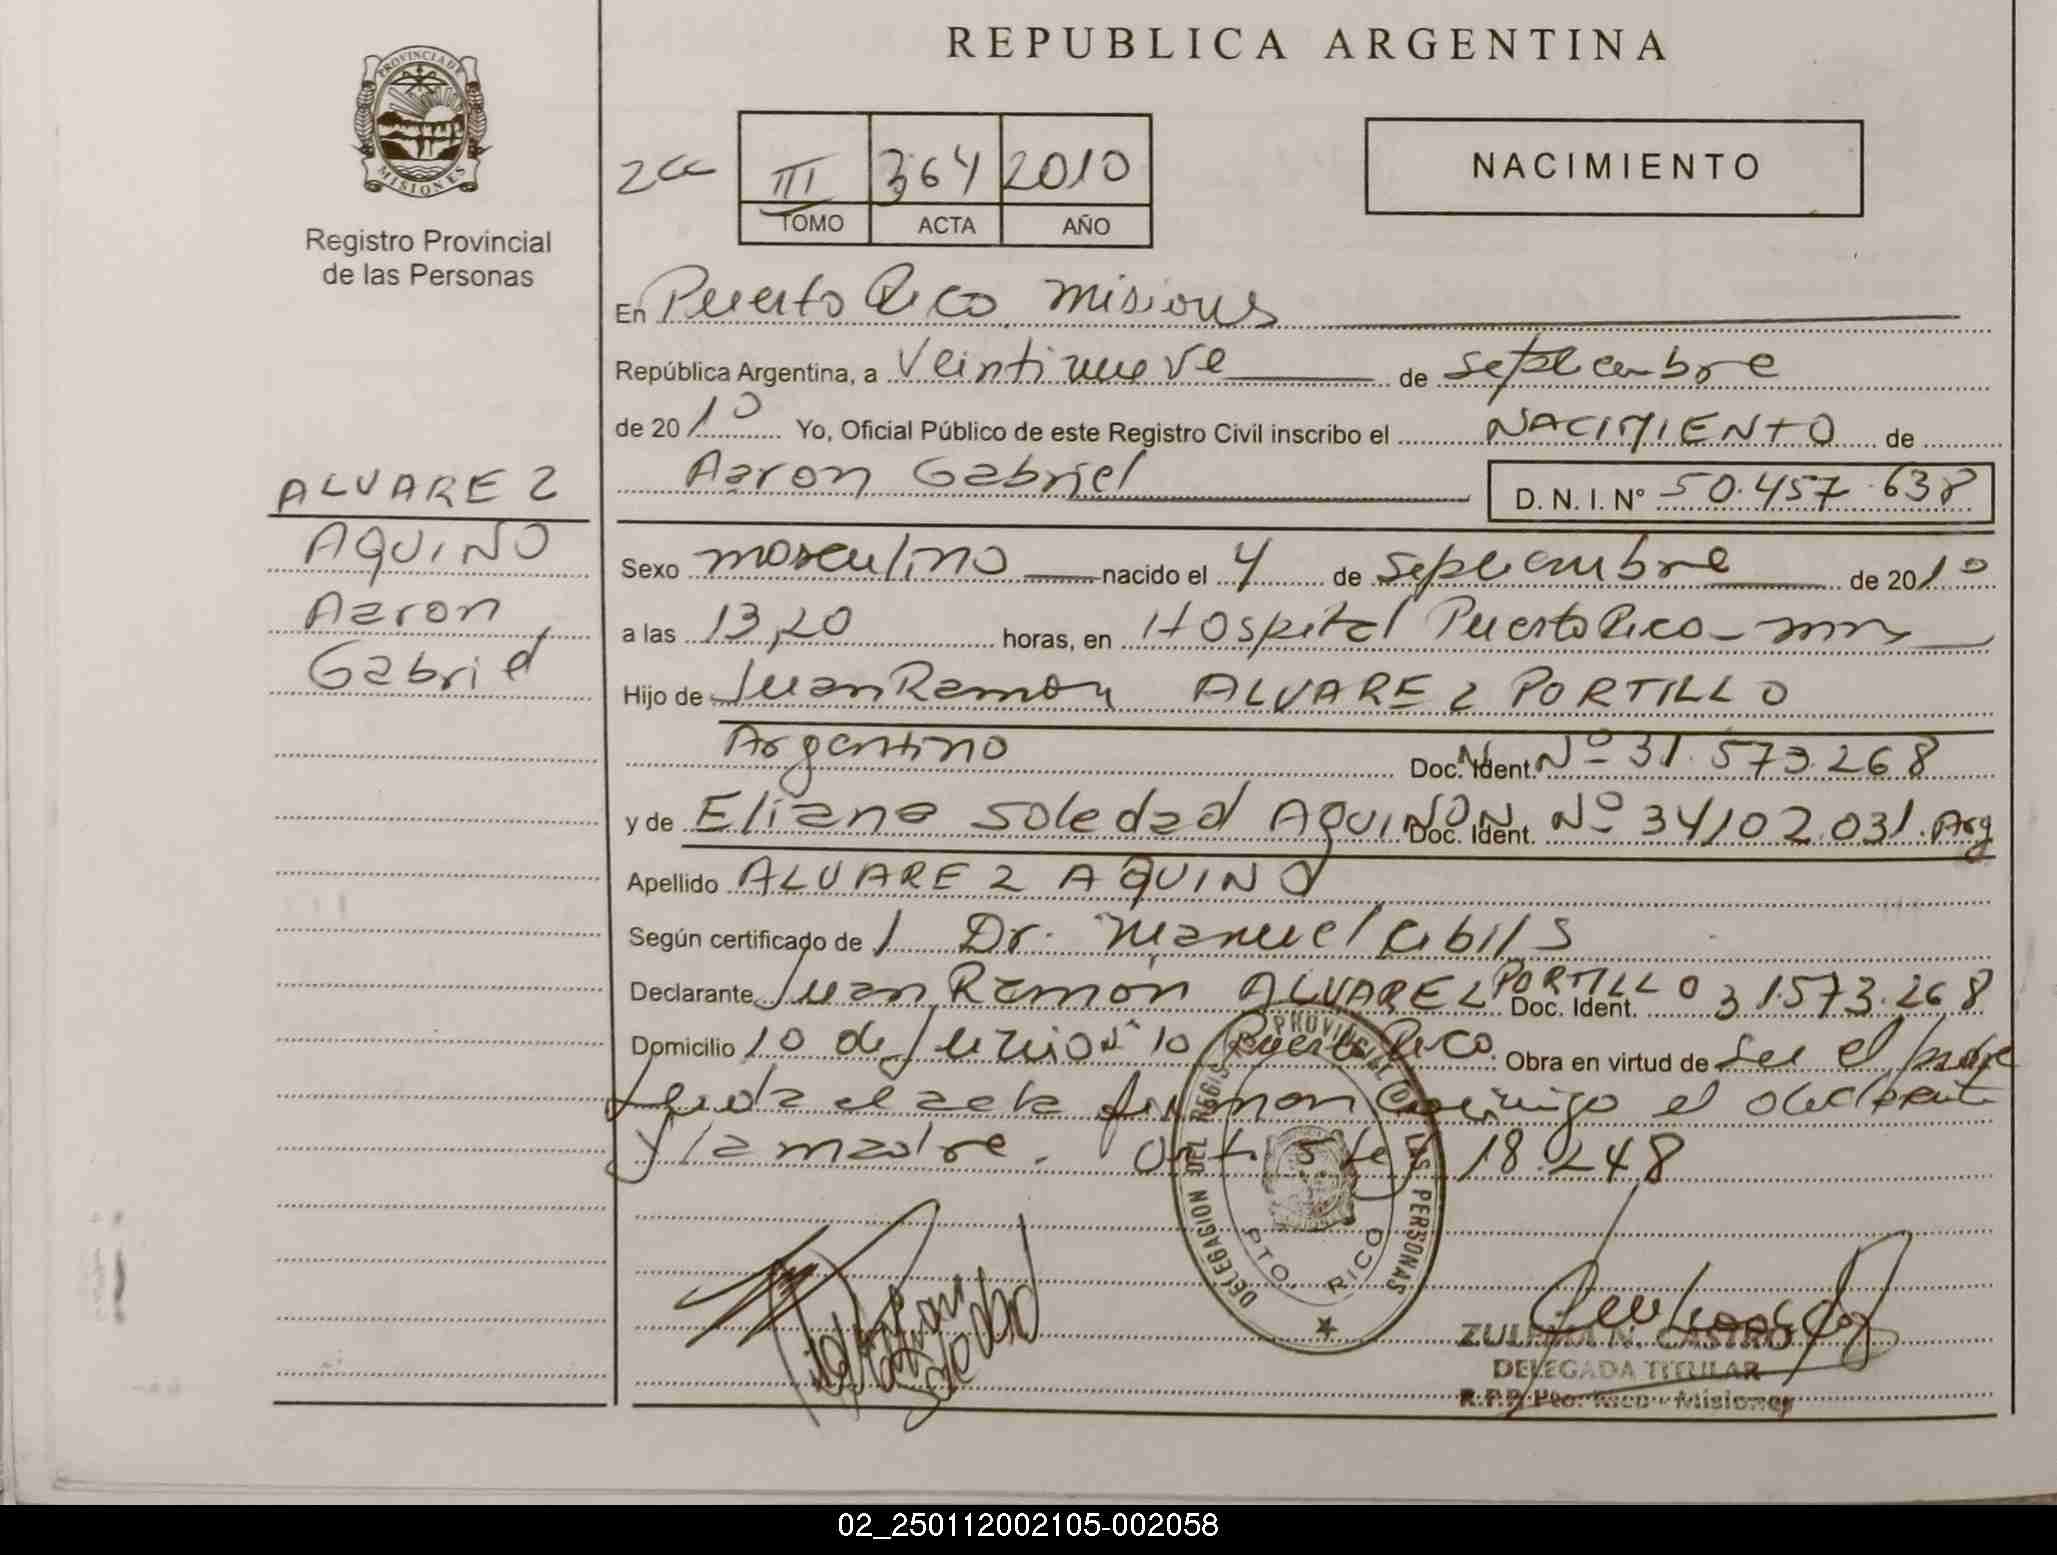 REPUBLICA ARGENTINA
PROVINCIA DE MISIONES
Registro Provincial
de las Personas
III 364 2010
TOMO ACTA AÑO
NACIMIENTO
En Puerto Rico Misiones
República Argentina, a Veintinueve de Septiembre
de 2010 Yo, Oficial Público de este Registro Civil inscribo el NACIMIENTO de
Aaron Gabriel D. N. I. N° 50.457.638
ALVAREZ
AQUINO
Aaron
Gabriel
Sexo masculino nacido el 4 de Septiembre de 2010
a las 13,20 horas, en Hospital Puerto Rico - mns
Hijo de Juan Ramon ALVAREZ PORTILLO
Argentino Doc. Ident. Nº 31.573.268
y de Eliana Soledad AQUINO Doc. Ident. Nº 34102.031. Arg
Apellido ALVAREZ AQUINO
Según certificado de / Dr. Manuel
Declarante Juan Ramón ALVAREZ PORTILLO Doc. Ident. 31.573.268
Domicilio 10 de Junio Nº 10 Puerto Rico. Obra en virtud de Ser el padre
Leida el acta firman conmigo el declarante
y la madre. 18.248
DELEGACION DEL REGISTRO PROVINCIAL DE LAS PERSONAS
PTO. RICO
ZULEMA N. CASTRO
DELEGADA TITULAR
R.P.P. Pto. Rico - Misiones
02_250112002105-002058